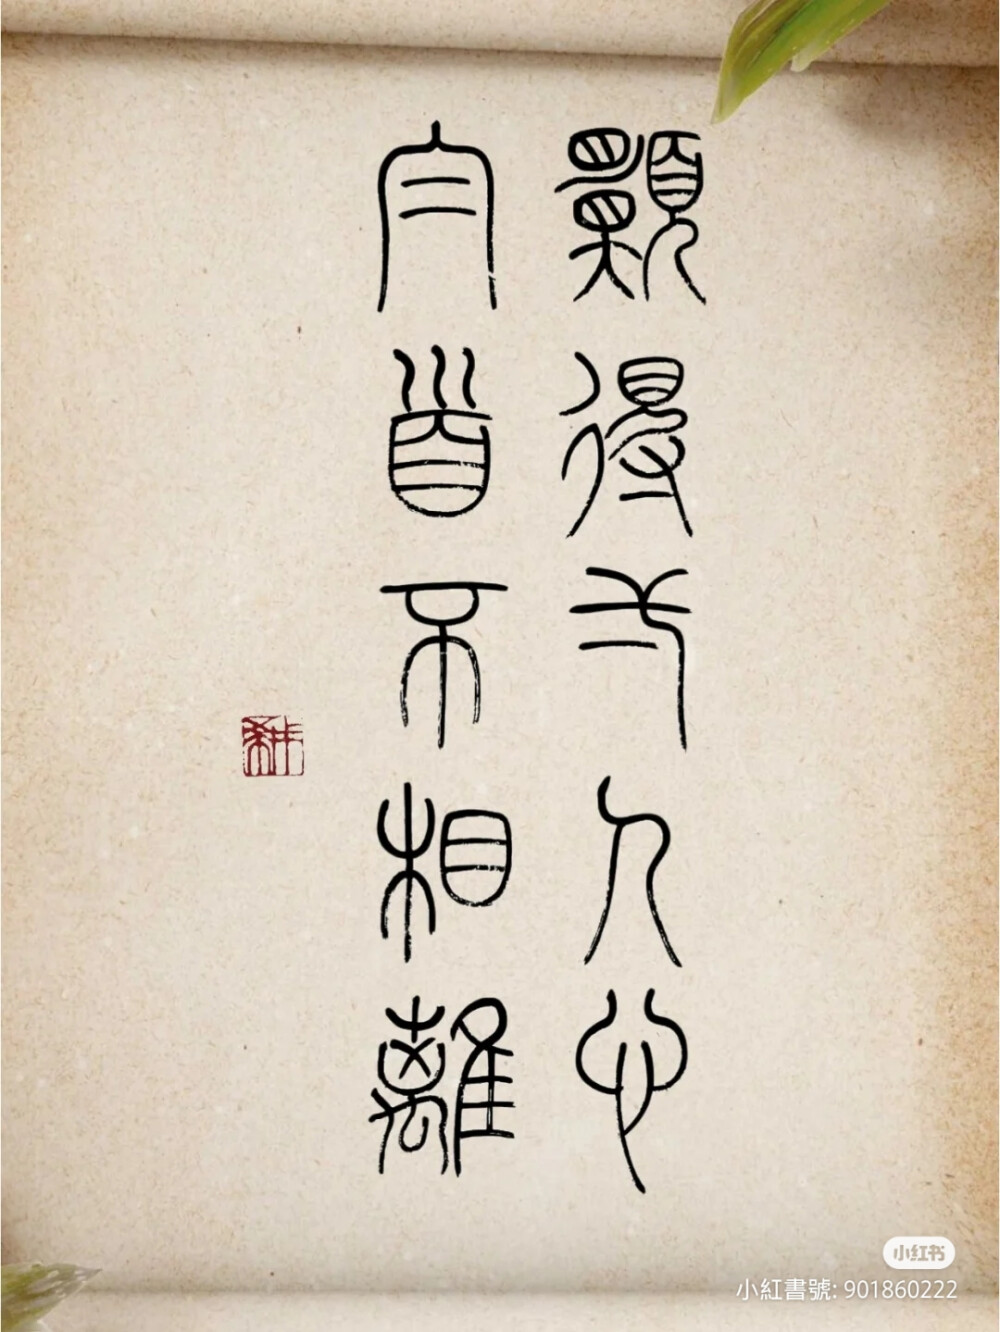 願得弌人心
白首不相離
小红书
小紅書號: 901860222